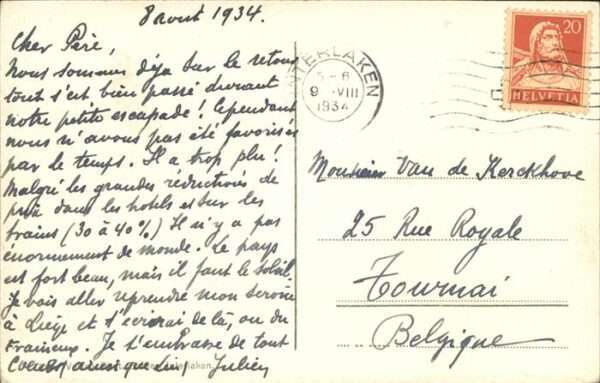 8 aout 1934.
Cher Père,
Nous sommes déja sur le retour
tout s'est bien passé durant
notre petite escapade! Cependant
nous n'avons pas été favorisés
par le temps. Il a trop plu!
Malgré les grandes réductions de
prix dans les hotels et sur les
trains (30 à 40%) Il n'y a pas
énormement de monde. Le pays
est fort beau, mais il faut le soleil.
Je vais aller reprendre mon
à Liège et t'écrirai de là, ou de
Fraineux. Je t'embrasse de tout
Coeur, ainsi que Julien
INTERLAKEN
5-6
9.VIII
1934
20
HELVETIA
Monsieur Van de Kerckhove
25 Rue Royale
Tournai
Belgique